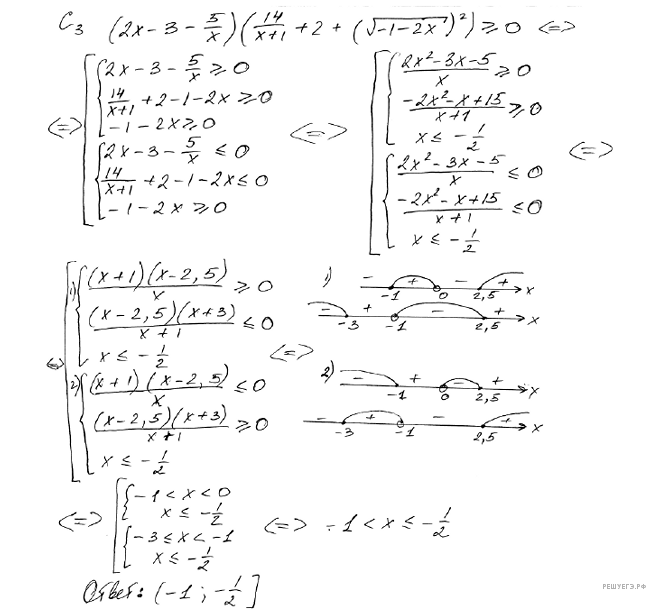 C3 (2x - 3 - 5/x)(14/(x+1) + 2 + (√(-1-2x))²) ≥ 0 <=>
<=> [ { 2x - 3 - 5/x ≥ 0
14/(x+1) + 2 - 1 - 2x ≥ 0
-1 - 2x ≥ 0
{ 2x - 3 - 5/x ≤ 0
14/(x+1) + 2 - 1 - 2x ≤ 0
-1 - 2x ≥ 0
<=> [ { (2x² - 3x - 5)/x ≥ 0
(-2x² - x + 15)/(x+1) ≥ 0
x ≤ -1/2
{ (2x² - 3x - 5)/x ≤ 0
(-2x² - x + 15)/(x+1) ≤ 0
x ≤ -1/2
<=>
<=> [ 1) { (x+1)(x-2,5)/x ≥ 0
(x-2,5)(x+3)/(x+1) ≤ 0
x ≤ -1/2
2) { (x+1)(x-2,5)/x ≤ 0
(x-2,5)(x+3)/(x+1) ≥ 0
x ≤ -1/2
<=>
1) - + - +
-1 0 2,5 x
- + - +
-3 -1 2,5 x
2) - + - +
-1 0 2,5 x
- + - +
-3 -1 2,5 x
<=> [ { -1 < x < 0
x ≤ -1/2
{ -3 ≤ x < -1
x ≤ -1/2
<=> -1 < x ≤ -1/2
Ответ: (-1; -1/2]
РЕШУЕГЭ.РФ